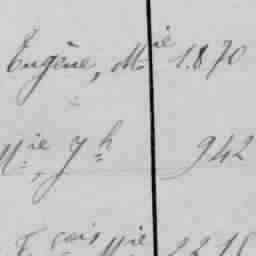 Eugène, M.ie 1870
M.ie, Jh 942
F.çois M.ie